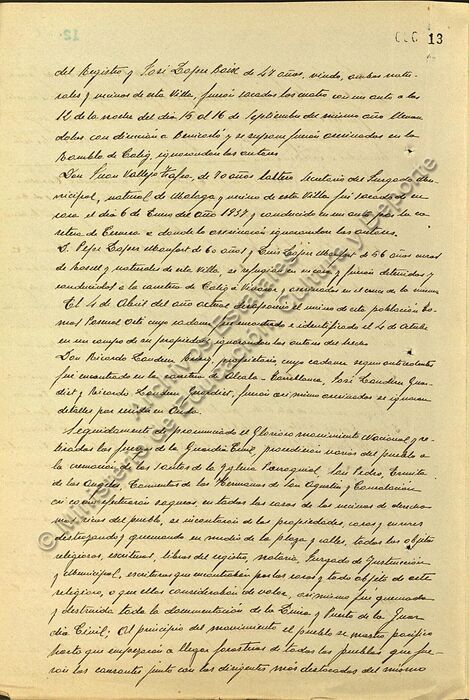 13
del Registro y José Lopez Roix de 47 años, viudo, ambos natu-
rales y vecinos de esta Villa, fueron sacados los cuatro con un auto a las
12 de la noche del dia 15 al 16 de Septiembre del mismo año
dolos con direccion a Benicarló y se supone fueron asesinados en la
Rambla de Calig, ignorandose los autores.
Don Juan Vallejo de 70 años Secretario del Juzgado Mu-
nicipal, natural de Malaga y vecino de esta Villa fue sacado de su
casa el dia 6 de Enero del Año 1937 y conducido en un auto por la ca-
rretera de Cervera a donde lo asesinaron ignorandose los autores.
D. Pepe Lopez Monfort de 60 años y Luis Lopez Monfort de 56 años curas
de y naturales de esta Villa, se refugian en su casa y fueron detenidos y
conducidos a la carretera de Calig a Vinaroz y asesinados en el cruce de la misma
El 4 de Abril del año actual desaparecio el vecino de esta población
Pascual Orti cuyo cadaver fue encontrado e identificado el 4 de Octubre
en un campo de su propiedad, ignorandose los autores del hecho.
Don Ricardo propietario, cuyo cadaver segun antecedentes
fue encontrado en la carretera de Alcala - José
y Ricardo fueron asi mismo asesinados se ignoran
detalles por residir en Onda.
Seguidamente de pronunciado el Glorioso movimiento Nacional y re-
tiradas las fuerzas de la Guardia Civil, procedieron varios del pueblo a
la cremación de los santos de la Yglesia Parroquial San Pedro, Ermita
de los Angeles, Conventos de las Hermanas de San Agustin y Consolación
asi como efectuaron saqueos, en todas las casas de los vecinos de derechas
del pueblo, se incautaron de las propiedades, casas y enseres
destrozando y quemando en medio de la plaza y calles, todos los objetos
religiosos, escrituras, libros del registro, notaria, Juzgado de Ynstrucción
y Municipal, escrituras que encontraban por las casas y todo objeto de arte
religioso, o que ellos consideraban de valor, asi mismo fue quemada
y destruida toda la documentación de la Linea y Puesto de la Guar-
dia Civil; Al principio del movimiento el pueblo se mostro pacifico
hasta que empezaron a llegar forasteros de todos los pueblos que fue-
ron los causantes junto con los dirigentes mas destacados del mismo
© Archivos Estatales
Ministerio de Educación, Cultura y Deporte